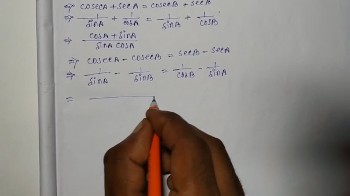 ⇒ cosecA + secA = cosecB + secB
⇒ 1/sinA + 1/cosA = 1/sinB + 1/cosB
⇒ cosA + sinA / sinA cosA
⇒ cosecA - cosecB = secB - secA
⇒ 1/sinA - 1/sinB = 1/cosB - 1/sinA
=